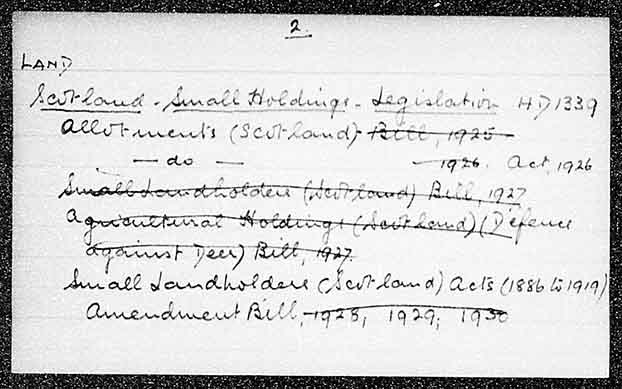 2.
LAND
Scotland - Small Holdings - Legislation HD 1339
Allotments (Scotland) Bill, 1925
— do — 1926. Act, 1926
Small Landholders (Scotland) Bill, 1927
Agricultural Holdings (Scotland) (Defence
against Deer) Bill, 1927
Small Landholders (Scotland) Acts (1886 to 1919)
Amendment Bill, 1928, 1929, 1930